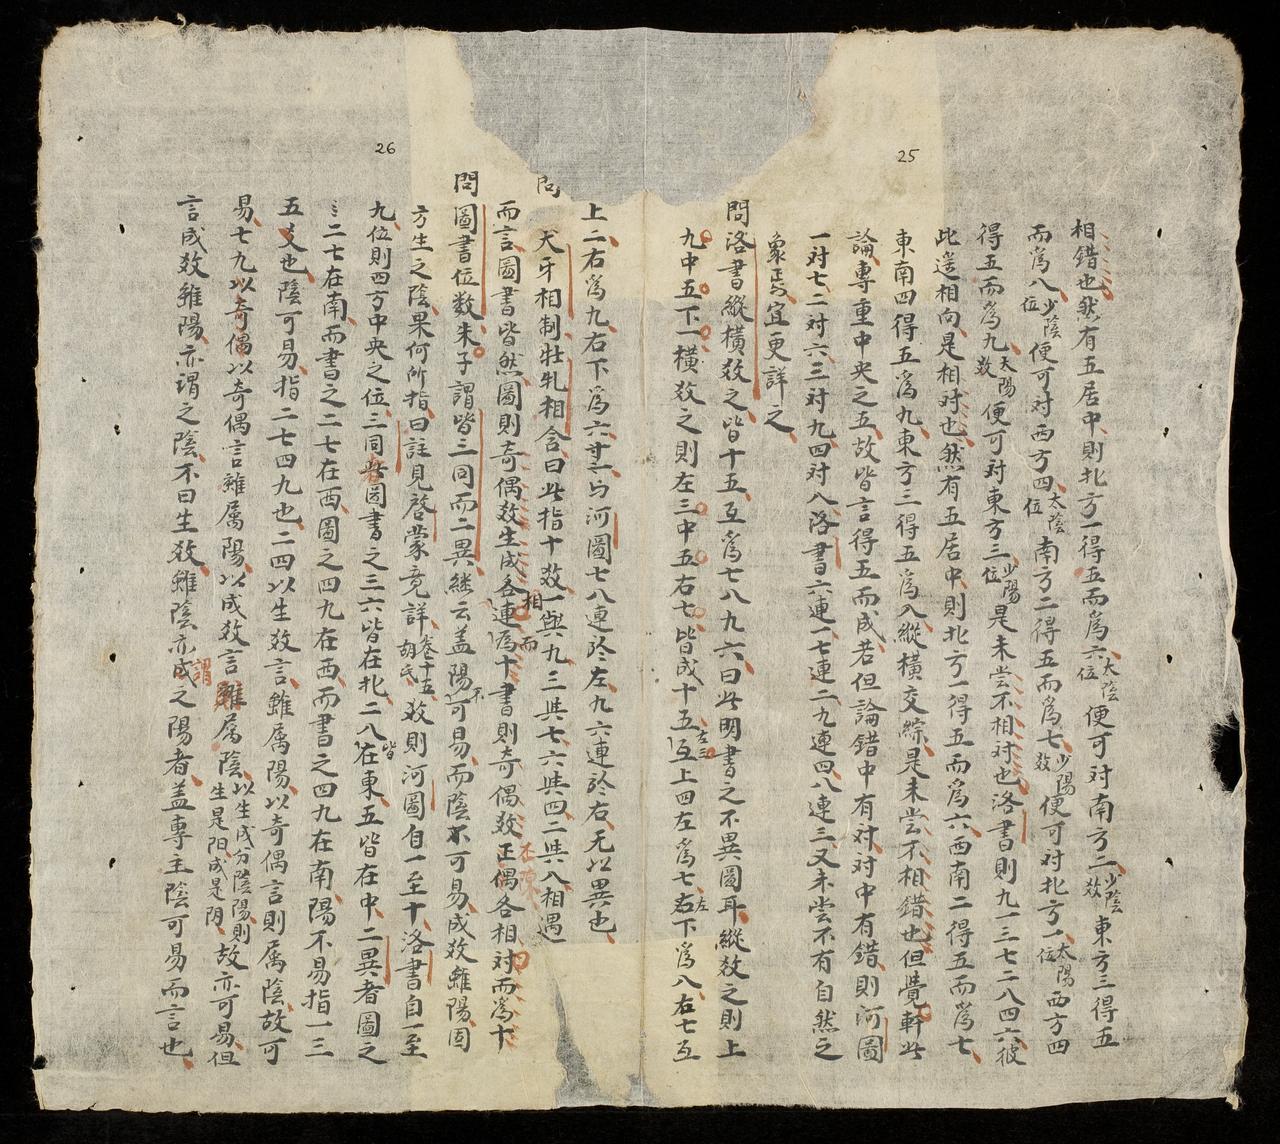 25
相錯也然有五居中則北方一得五而爲六太陰位便可对南方二少陰数東方三得五
而爲八少陰位便可对西方四太陰位南方二得五而爲七少陽数便可对北方一太陽位西方四
得五而爲九太陽数便可对東方三少陽位是未尝不相对也洛書則九一三七二八四六彼
此遥相向是相对也然有五居中則北方一得五而爲六西南二得五而爲七
東南四得五爲九東方三得五爲八縱横交綜是未尝不相錯也但覺軒此
論專重中央之五故皆言得五而成若但論錯中有对对中有錯則河圖
一対七二対六三対九四対八洛書六連一七連二九連四八連三又未尝不有自然之
象焉宜更詳之
問洛書縱横数之皆十五互爲七八九六曰此明書之不異圖耳縱数之則上
九中五下一横数之則左三中五右七皆成十五左三互上四左爲七右左下爲八右七互
上二右爲九右下爲六廿二与河圖七八連於左九六連於右无以異也
問犬牙相制牡牝相含曰此指十数一與九三與七六與四二與八相遇
而言圖書皆然圖則奇偶数生成各相連而爲十書則奇偶数正偶各相対而爲十
問圖書位数朱子謂皆三同而二異継云盖陽不可易而陰不可易成数雖陽固
26
方生之陰果何所指曰註見啓蒙竟詳胡氏卷十五数則河圖自一至十洛書自一至
九位則四方中央之位三同者圖書之三六皆在北二八皆在東五皆在中二異者圖之
二七在南而書之二七在西圖之四九在西而書之四九在南陽不易指一三
五爻也陰可易指二七四九也二四以生数言雖属陽以奇偶言則属陰故可
易七九以奇偶以奇偶言雖属陽以成数言雖属陰以生成分陰陽則生是阳成是阴故亦可易但
言成数雖陽亦謂之陰不曰生数雖陰亦謂之陽者盖專主陰可易而言也